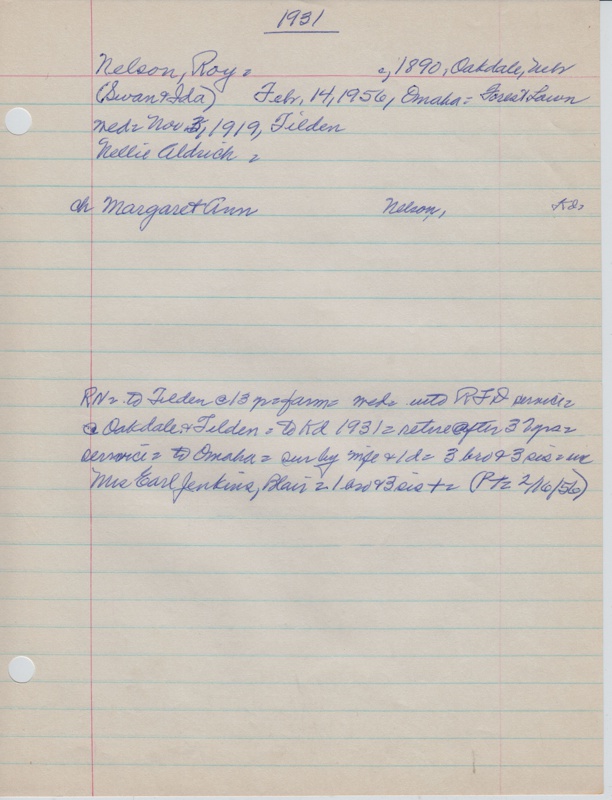 1931
Nelson, Roy = c, 1890, Oakdale, Nebr
(Swan & Ida) Feb, 14, 1956, Omaha = Forest Lawn
med = Nov 5, 1919, Tilden
Nellie Aldrich =
ch Margaret Ann Nelson, Kd,
RN = to Tilden @ 13 p = farm = med = into RFD service =
@ Oakdale & Tilden = to Kd 1931 = retire after 32 yrs =
service = to Omaha = sur by wife & 1 d = 3 bro & 3 sis =
Mrs Earl Jenkins, Blair = 1 bro & 3 sis + = (Pt = 2/16/56)